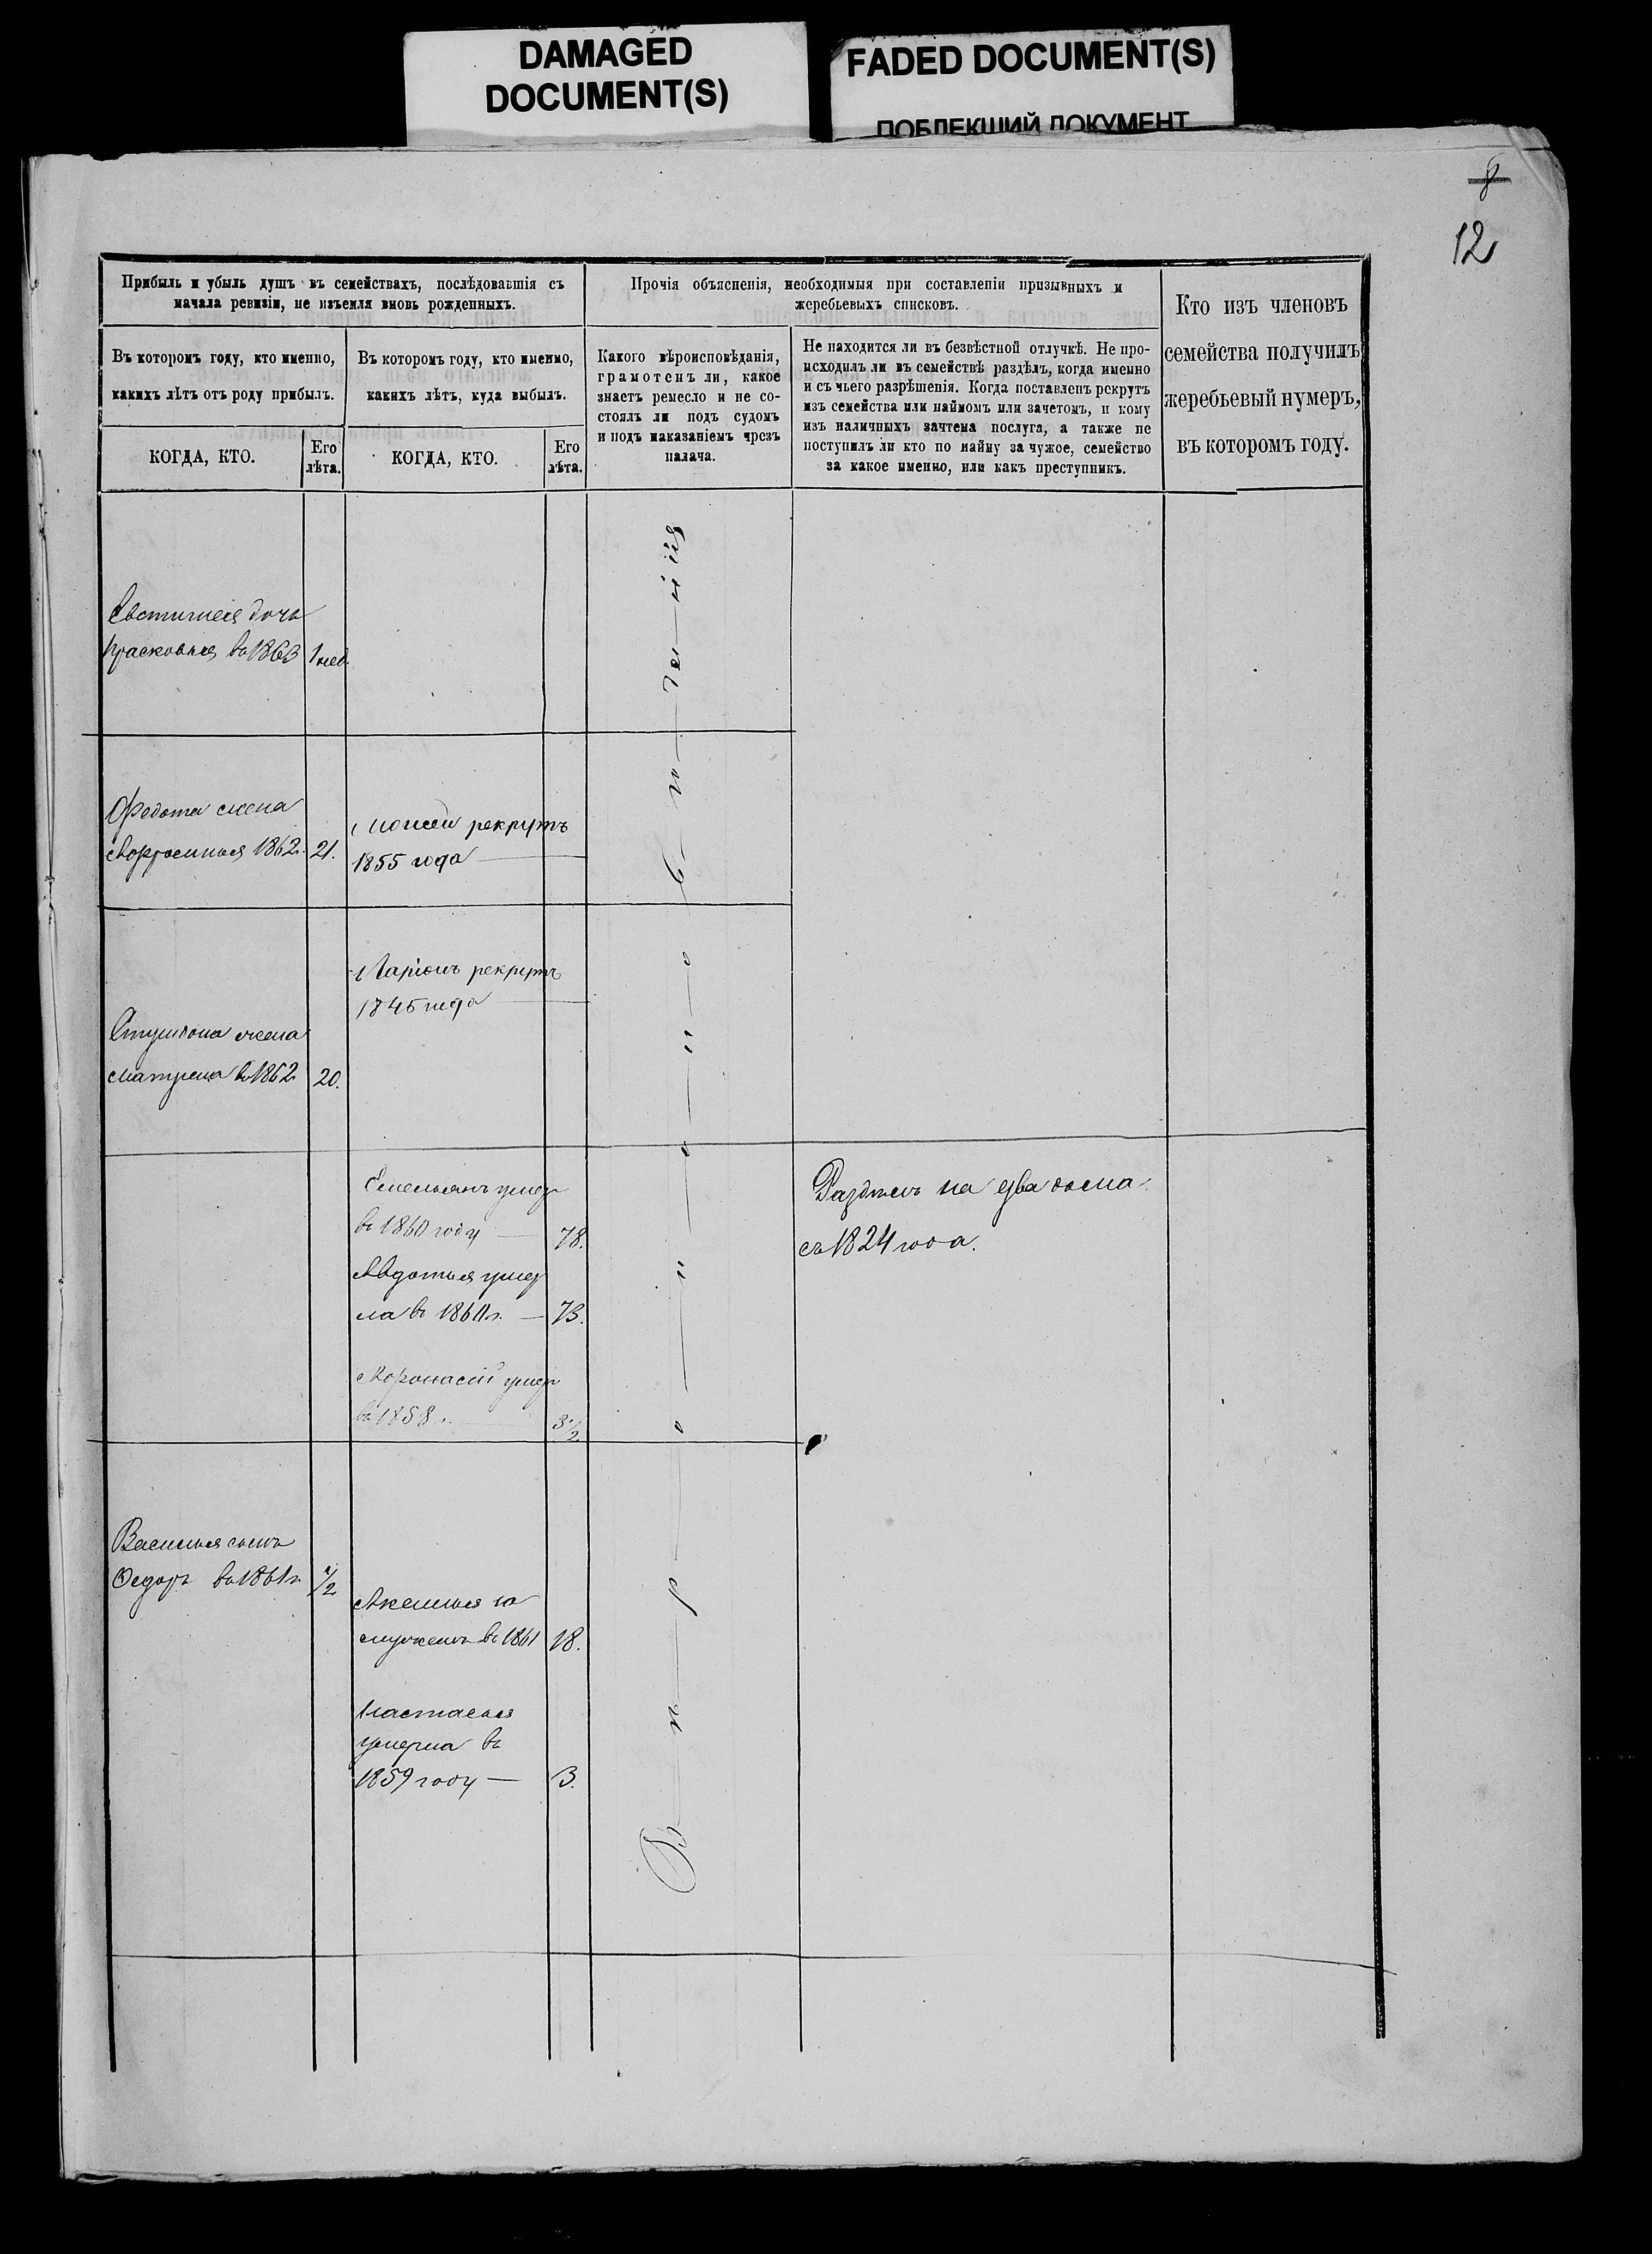 DAMAGED
DOCUMENT(S)
FADED DOCUMENT(S)
ПОБЛЕКШИЙ ДОКУМЕНТ
8
12
Прибыль и убыль душъ въ семействахъ, послѣдовавшія съ
начала ревизіи, не изъемля вновь рожденныхъ.
Въ которомъ году, кто именно,
какихъ лѣтъ отъ роду прибылъ.
КОГДА, КТО.
Его
лѣта.
Въ которомъ году, кто именно,
какихъ лѣтъ, куда выбылъ.
КОГДА, КТО.
Его
лѣта.
Прочія объясненія, необходимыя при составленіи призывныхъ и
жеребьевыхъ списковъ.
Какого вѣроисповѣданія,
грамотенъ ли, какое
знаетъ ремесло и не со-
стоялъ ли подъ судомъ
и подъ наказаніемъ чрезъ
палача.
Не находится ли въ безвѣстной отлучкѣ. Не про-
исходилъ ли въ семействѣ раздѣлъ, когда именно
и съ чьего разрѣшенія. Когда поставленъ рекрутъ
изъ семейства или наймомъ или зачетомъ, и кому
изъ наличныхъ зачтена послуга, а также не
поступилъ ли кто по найму за чужое, семейство
за какое именно, или какъ преступникъ.
Кто изъ членовъ
семейства получилъ
жеребьевый нумеръ,
въ которомъ году.
дочь
Прасковья въ 1863
1 нед.
Федота жена
1862.
21.
Моисей рекрутъ
1855 года
Ларіонъ рекрутъ
1845 года
жена
Матрена въ 1862
20.
Емельянъ умеръ
въ 1860 году
78.
Авдотья умер
ла въ 1860 г.
73.
Афонасій умеръ
въ 1858 г.
3½
Раздѣлъ на два дома
съ 1824 года.
Василья сынъ
Федоръ въ 1861 г.
½
Аксинья за
мужемъ въ 1861
18.
Настасья
умерла въ
1859 году
3.